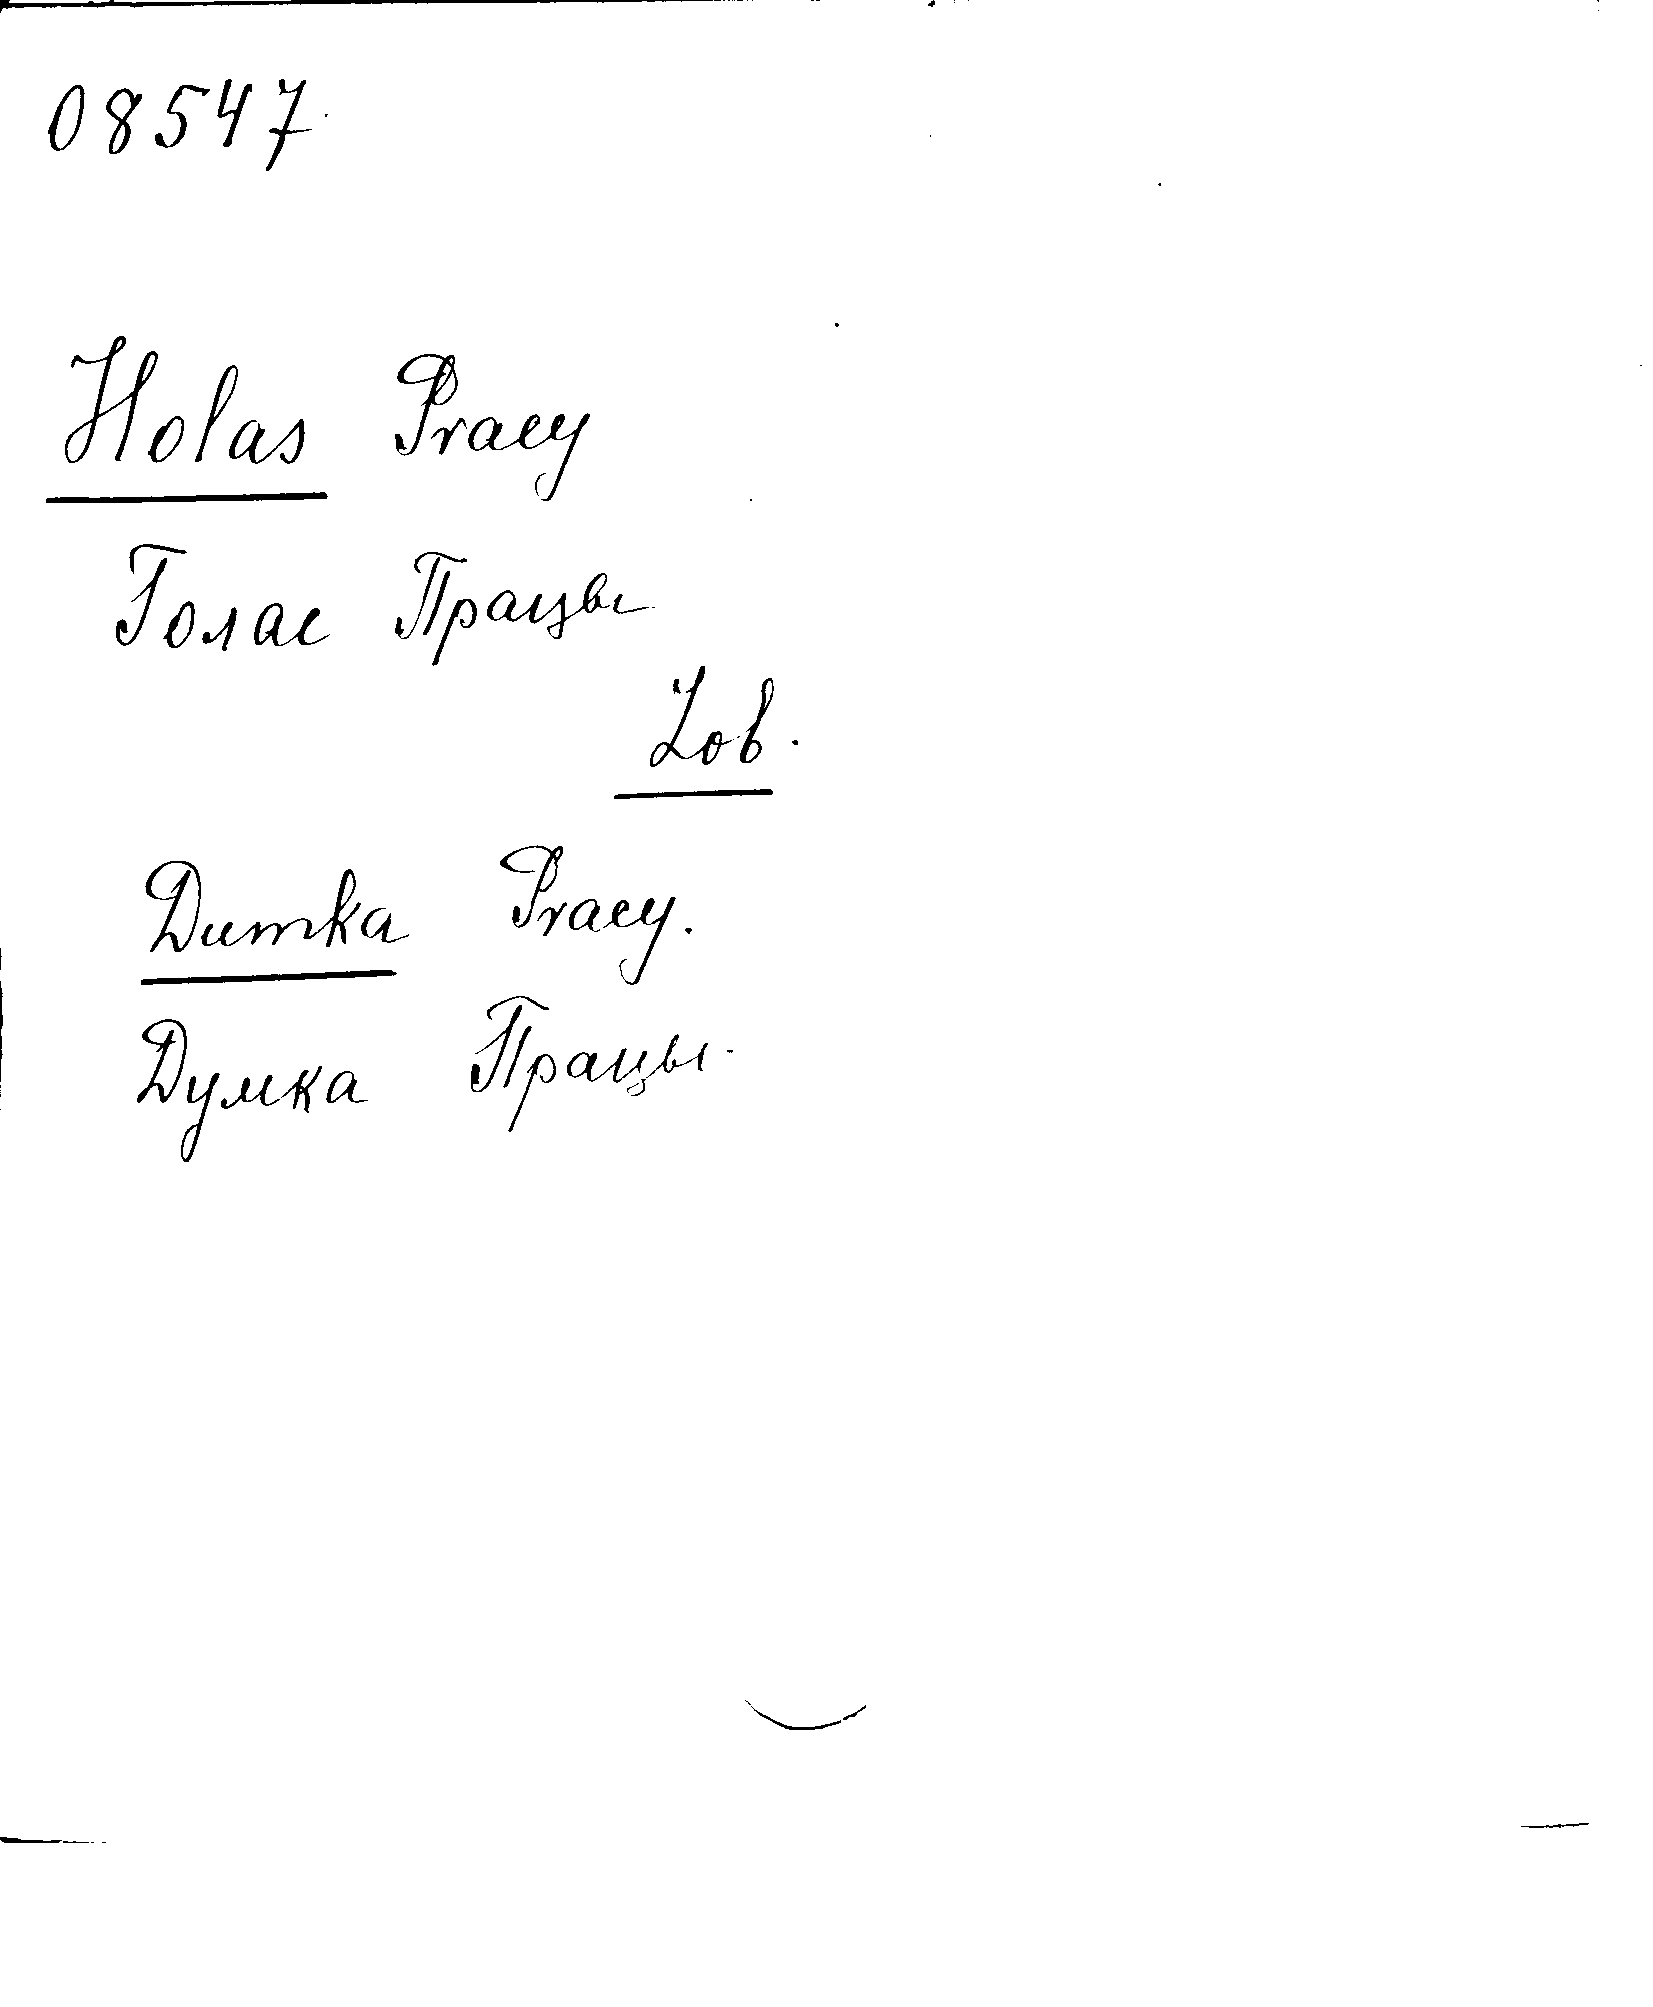 08547
Holas Pracy
Голас Працы
Zob.
Dumka Pracy.
Думка Працы.